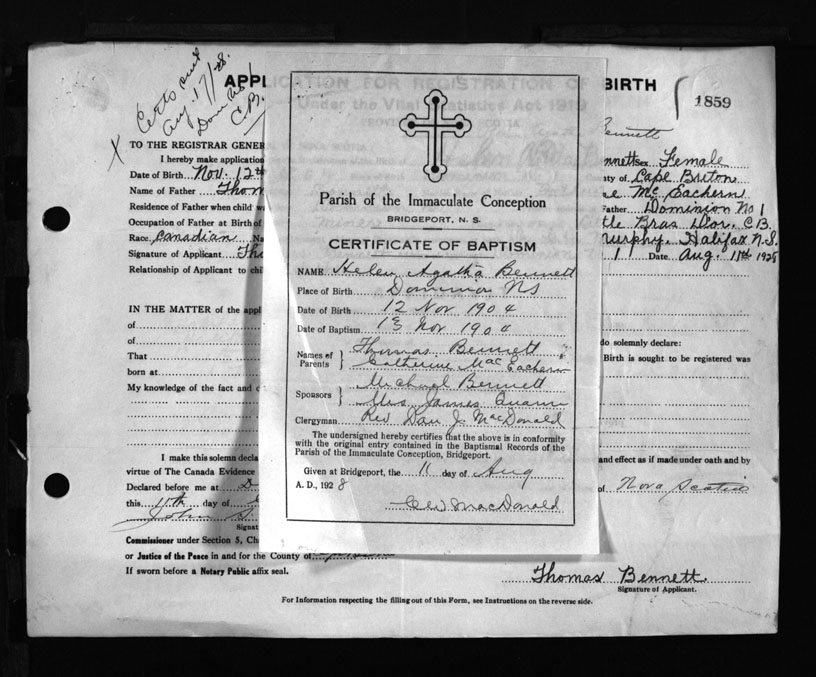 Certs sent
Aug. 17/28.
Dom. No 1
C.B.
X
APPLICATION FOR REGISTRATION OF BIRTH
1859
Under the Vital Statistics Act 1919
Bennett
TO THE REGISTRAR GENER
I hereby make application
Bennett Sex Female
Date of Birth Nov. 12th
ty of Cape Breton
Name of Father Thom
Mc Eachern
Residence of Father when child w
Father Dominion No 1
Occupation of Father at Birth of
tle Bras D'or, C.B.
Race Canadian Na
Murphy, Halifax N.S.
Signature of Applicant Tho
1 Date Aug. 11th 1928
Relationship of Applicant to chi
IN THE MATTER of the appl
of
of
do solemnly declare:
That
Birth is sought to be registered was
born at
My knowledge of the fact and c
I make this solemn decla
and effect as if made under oath and by
virtue of The Canada Evidence
Declared before me at D
of Nova Scotia
this 11th day of
John S.
Signat
Commissioner under Section 5, Ch
or Justice of the Peace in and for the County of
If sworn before a Notary Public affix seal.
Thomas Bennett
Signature of Applicant.
For Information respecting the filling out of this Form, see Instructions on the reverse side.
Parish of the Immaculate Conception
BRIDGEPORT, N. S.
CERTIFICATE OF BAPTISM
NAME Helen Agatha Bennett
Place of Birth Dominion NS
Date of Birth 12 Nov 1904
Date of Baptism 13 Nov 1904
Names of Parents } Thomas Bennett
Catherine MacEachern
Sponsors } Michael Bennett
Mrs James Quann
Clergyman Rev Dan J. MacDonald
The undersigned hereby certifies that the above is in conformity
with the original entry contained in the Baptismal Records of the
Parish of the Immaculate Conception, Bridgeport.
Given at Bridgeport, the 11 day of Aug
A. D., 1928
MacDonald